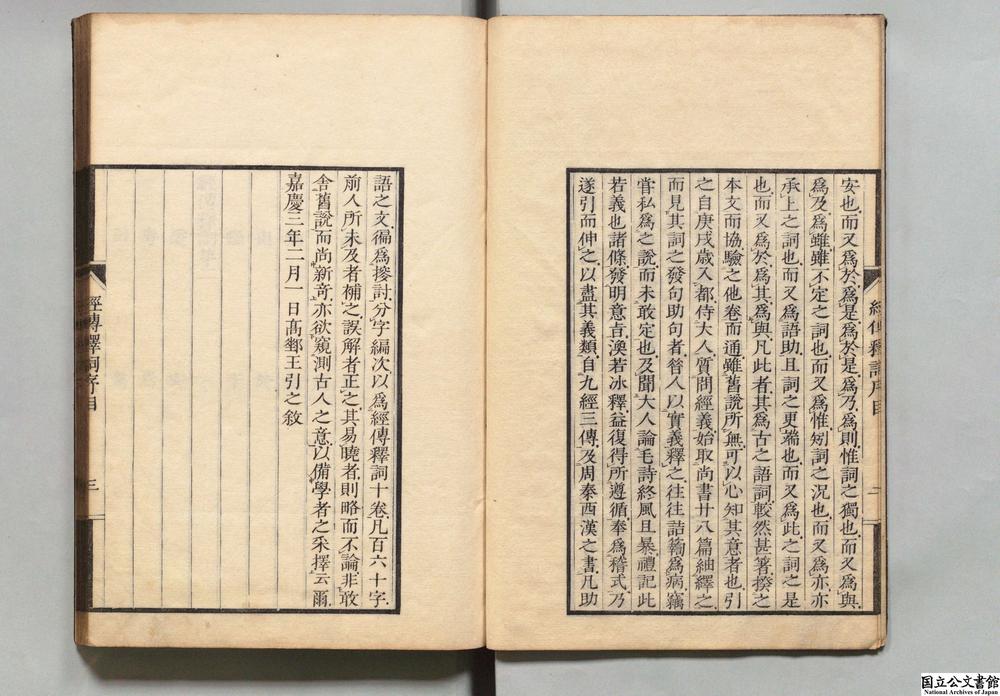 安也而又爲於爲是爲於是爲乃爲則惟詞之獨也而又爲與
爲及爲雖雖不定之詞也而又爲惟矧詞之況也而又爲亦亦
承上之詞也而又爲語助且詞之更端也而又爲此之詞之是
也而又爲於爲其爲與凡此者其爲古之語詞較然甚箸揆之
本文而協驗之他卷而通雖舊說所無可以心知其意者也引
之自庚戌歲入都侍大人質問經義始取尚書廿八篇紬繹之
而見其詞之發句助句者昝人以實義釋之往往詰𥷚爲病竊
嘗私爲之說而未敢定也及聞大人論毛詩終風且暴禮記此
若義也諸條發明意恉渙若冰釋益復得所遵循奉爲稽式乃
遂引而伸之以盡其義類自九經三傳及周秦西漢之書凡助
經傳釋詞序目
語之文徧爲搜討分字編次以爲經傳釋詞十卷凡百六十字
前人所未及者補之誤解者正之其易曉者則略而不論非敢
舍舊說而尚新奇亦欲窺測古人之意以備學者之采擇云爾
嘉慶三年二月一日高郵王引之敘
經傳釋詞序目
三
国立公文書館
National Archives of Japan